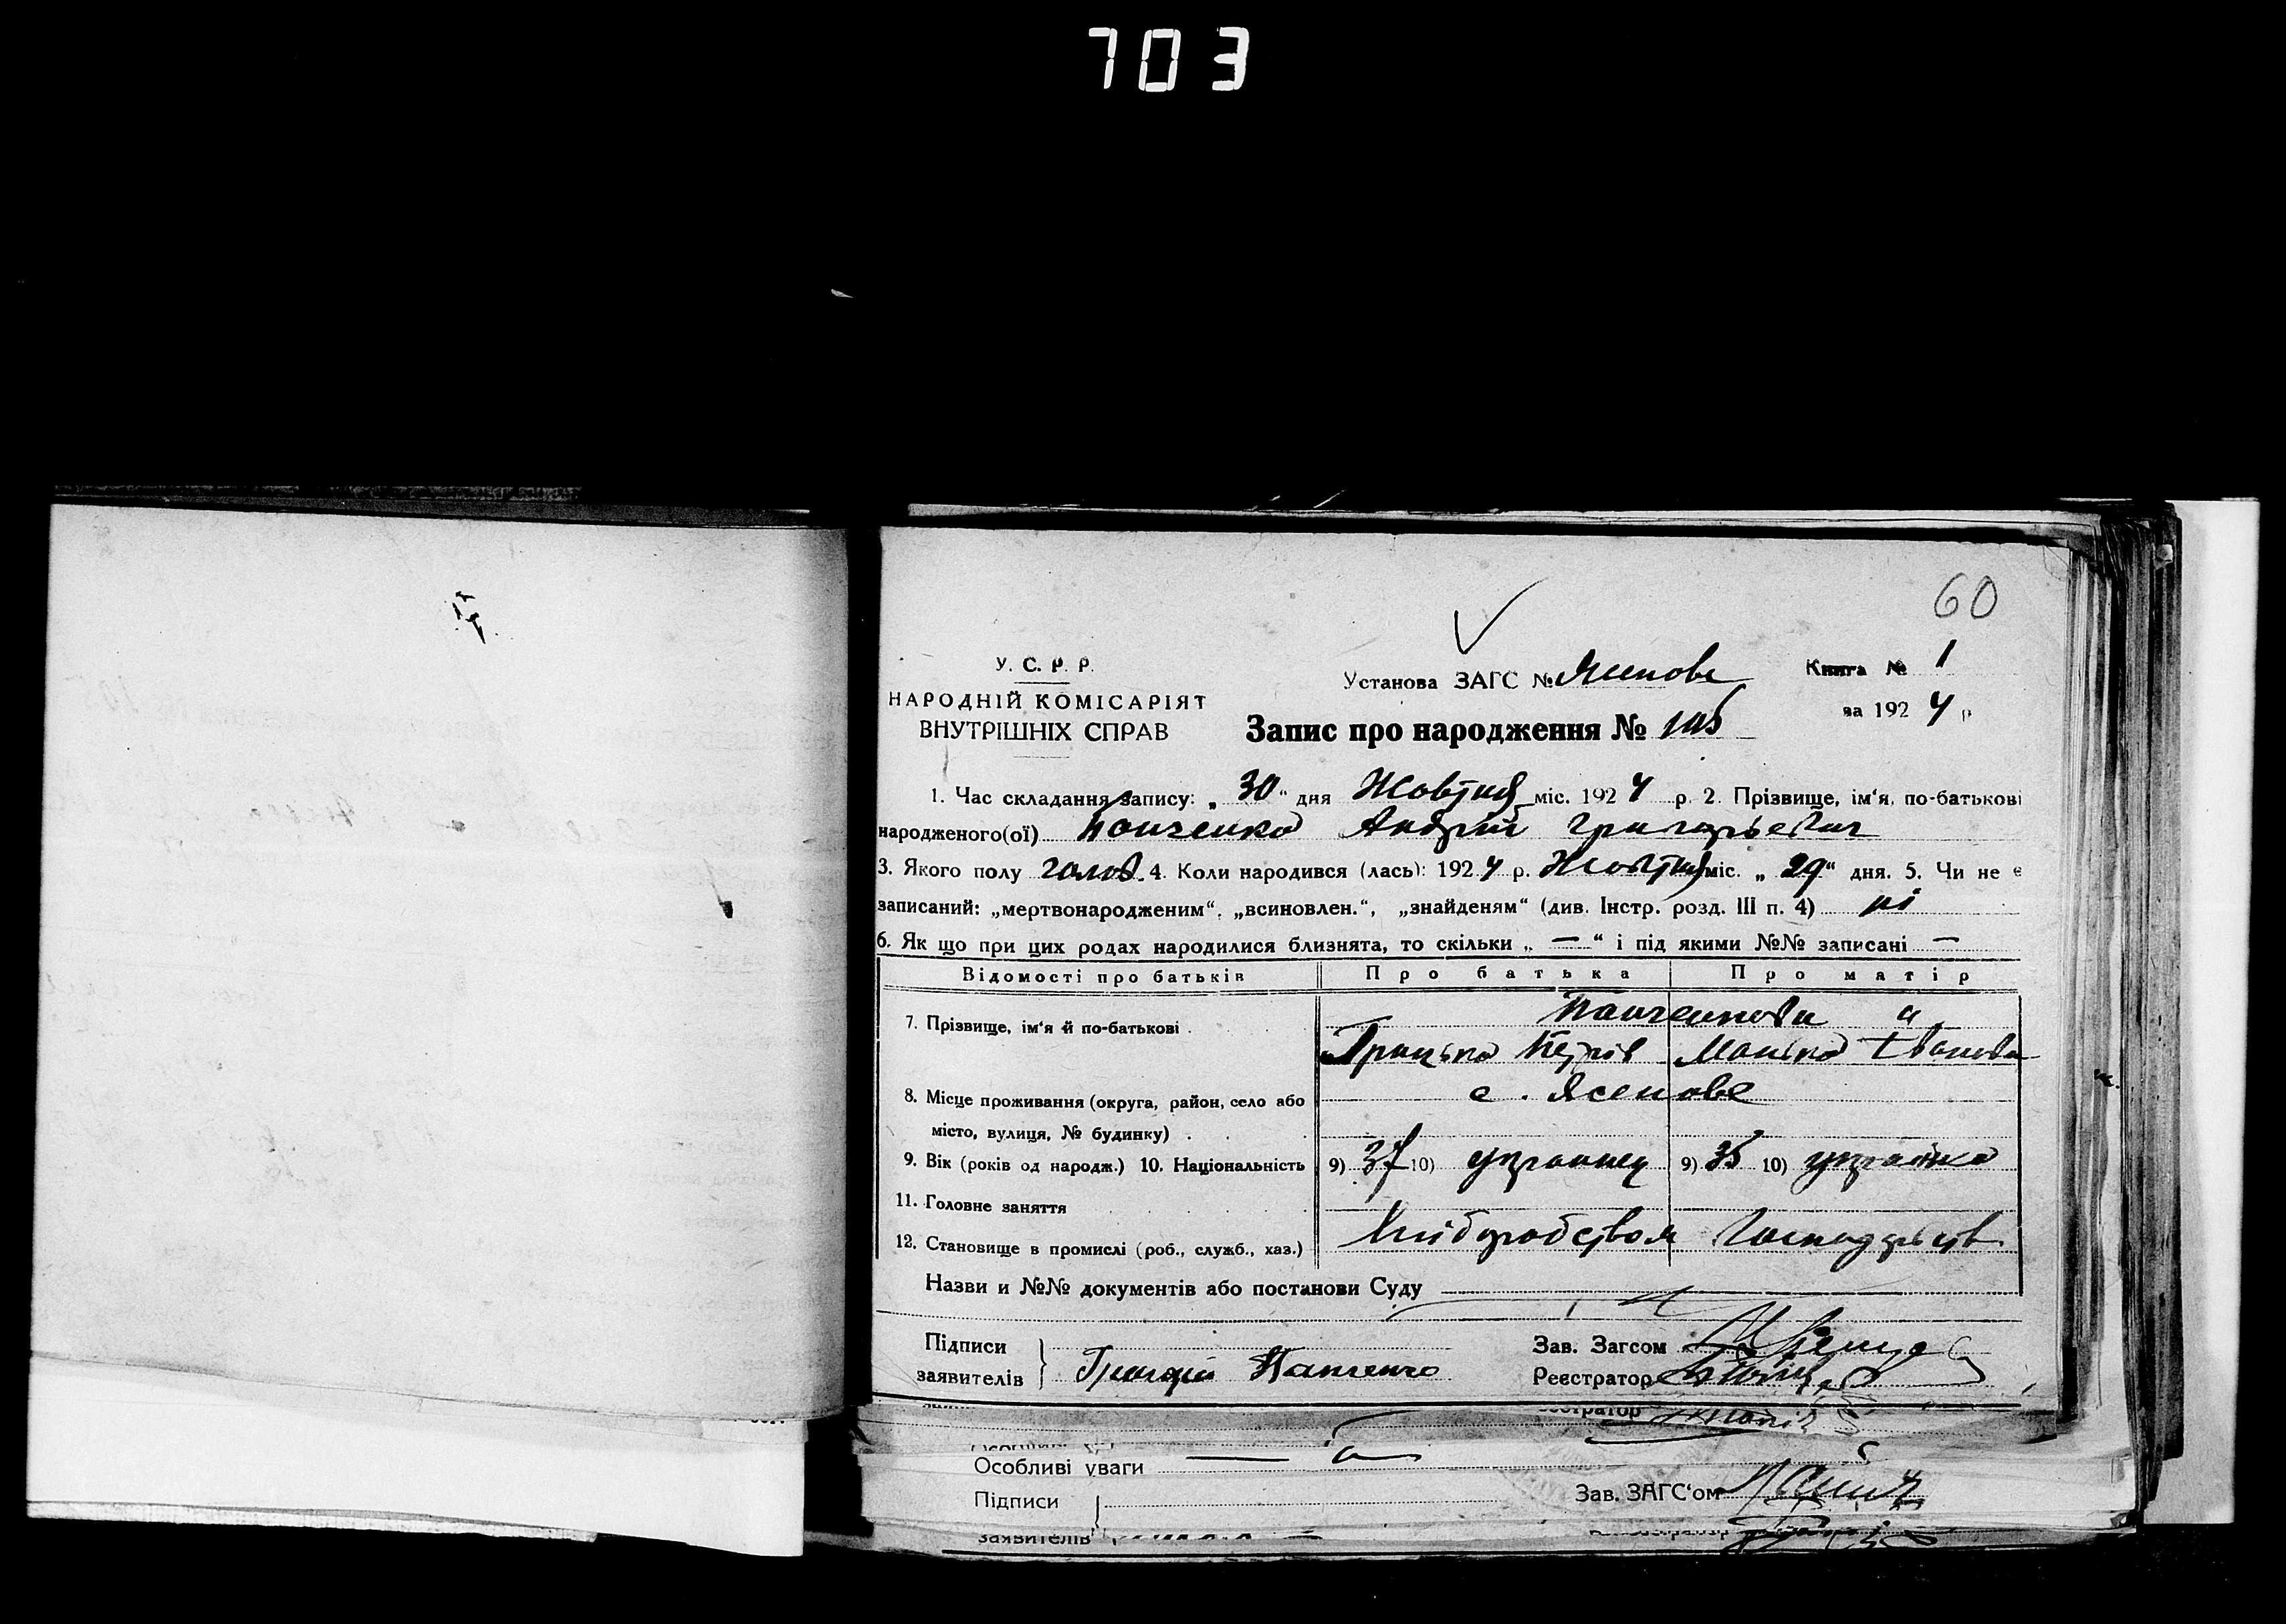 703
60
У. С. Р. Р.
НАРОДНІЙ КОМІСАРІЯТ
ВНУТРІШНІХ СПРАВ
Установа ЗАГС № Ясинове
Книга № 1
за 1924 р
Запис про народження № 105
1. Час складання запису: „ 30 “ дня Жовтня міс. 1924 р. 2. Прізвище, ім‘я, по-батькові
народженого(ої) Панченко Андрій Григорьевич
3. Якого полу чолов. 4. Коли народився (лась): 1924 р. Жовтня міс. „ 29 “ дня. 5. Чи не є
записаний: „мертвонародженим“, „всиновлен.“, „знайденям“ (див. Інстр. розд. III п. 4) ні
6. Як що при цих родах народилися близнята, то скільки „ — “ і під якими №№ записані —
Відомості про батьків Про батька Про матір
7. Прізвище, ім‘я й по-батькові . Панченкови
Грицько Петрів Манька Іванова
8. Місце проживання (округа, район, село або с. Ясенове
місто, вулиця, № будинку) .
9. Вік (років од народж.) 10. Національність 9) 37 10) українец 9) 35 10) українка
11. Головне заняття
12. Становище в промислі (роб., служб., хаз.) Хліборобством
Назви и №№ документів або постанови Суду
Підписи
заявителів Григорій Панченко
Зав. Загсом
Реєстратор
Особливі уваги
Підписи
заявителів
Зав. ЗАГС‘ом